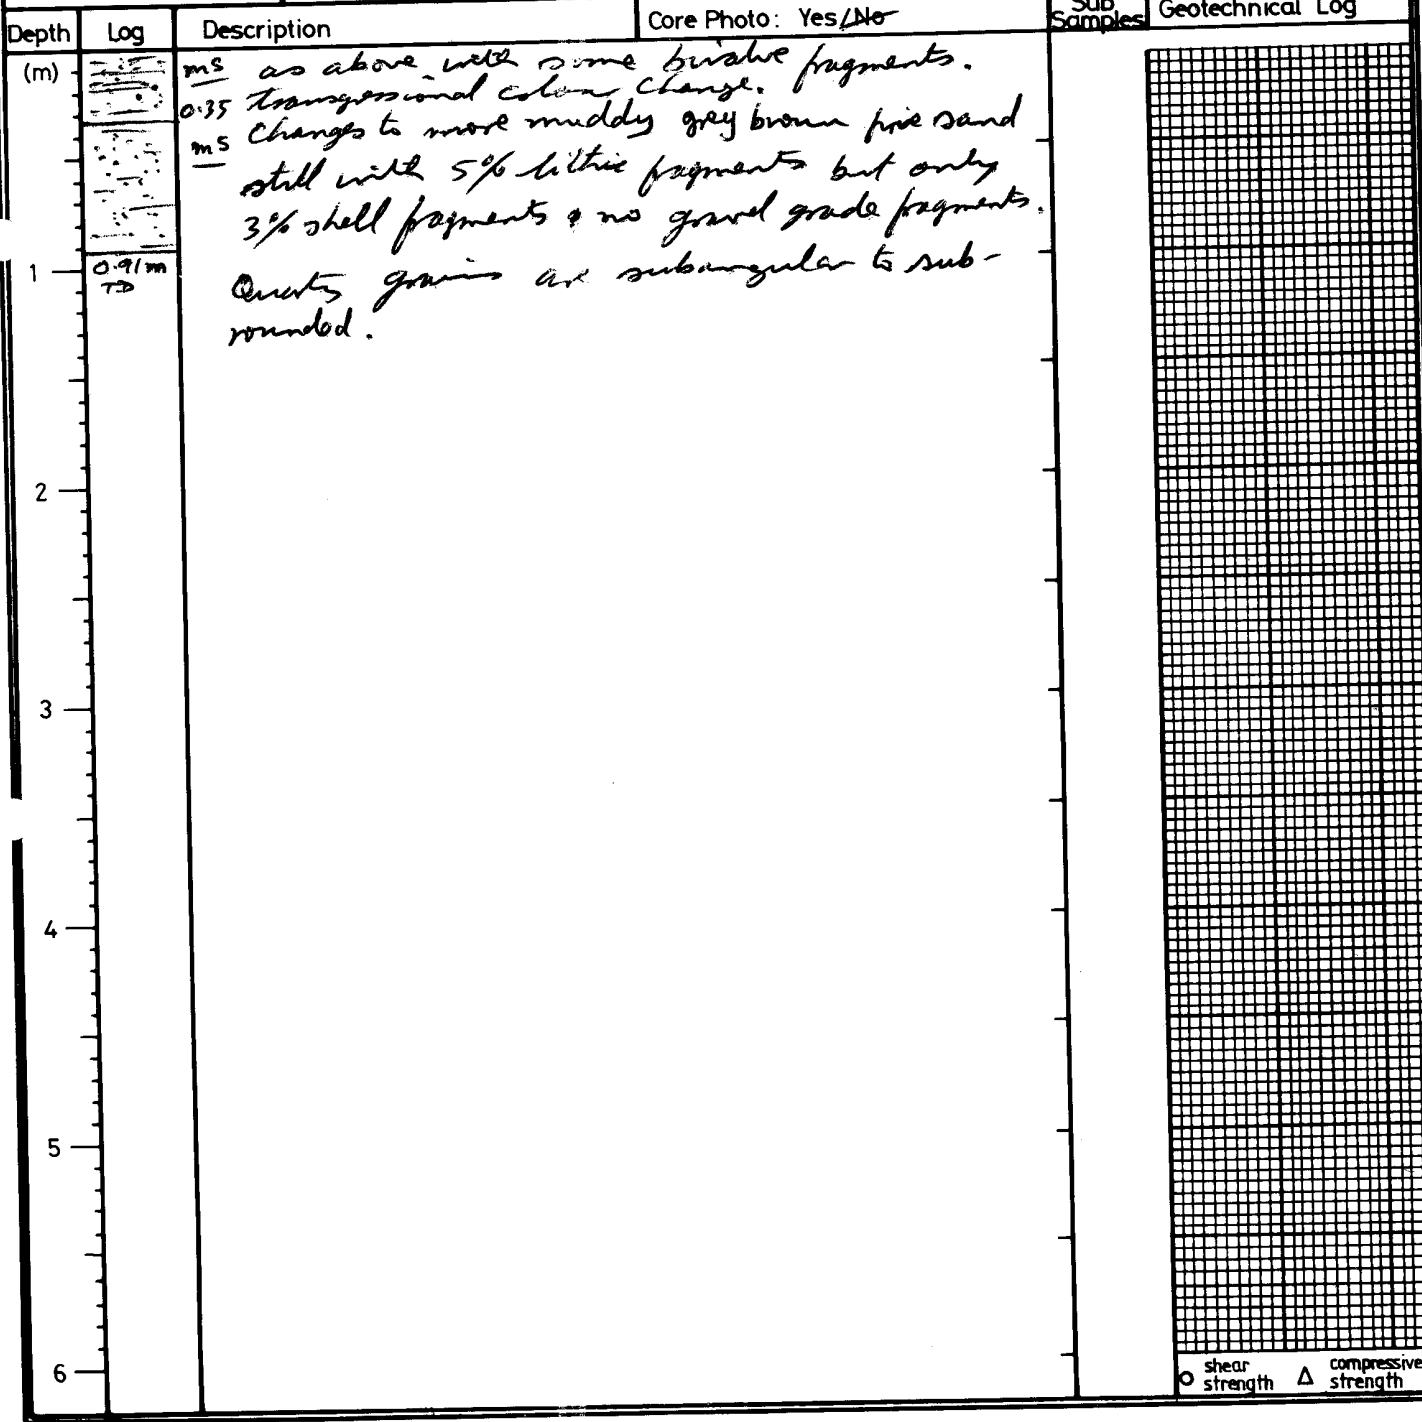 Depth Log Description Core Photo: Yes/No Sub Samples Geotechnical Log
(m)
mS as above with some bivalve fragments.
0.35 transgressional colour change.
mS Changes to more muddy grey brown fine sand
still with 5% lithic fragments but only
3% shell fragments & no gravel grade fragments.
1 0.91m
TD
Quartz grains are subangular to sub-
rounded.
2
3
4
5
6
shear strength compressive strength